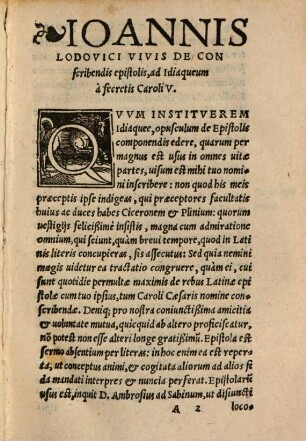 IOANNIS
LODOVICI VIVIS DE CON
scribendis epistolis, ad Idiaqueum
à secretis Caroli V.
QVVM INSTITVEREM
Idiaquee, opusculum de Epistolis
componendis edere, quarum per
magnus est usus in omnes uitæ
partes, uisum est mihi tuo nomi
ni inscribere: non quod his meis
præceptis ipse indigeas, qui præceptores facultatis
huius ac duces habes Ciceronem & Plinium: quorum
uestigijs felicißimè insistis, magna cum admiratione
omnium, qui sciunt, quàm breui tempore, quod in Lati
nis literis concupieras, sis assecutus: Sed quia nemini
magis uidetur ea tractatio congruere, quàm ei, cui
sunt quotidie permultæ maximis de rebus Latinæ epi
stolæ cum tuo ipsius, tum Caroli Cæsaris nomine conscri
bendæ. Deniq; pro nostra coniunctißima amicitia
& uoluntate mutua, quicquid ab altero proficiscatur,
nō potest non esse alteri longè gratißimū. Epistola est
sermo absentium per literas: in hoc enim ea est reper-
ta, ut conceptus animi, & cogitata aliorum ad alios fi
da mandati interpres & nuncia perferat. Epistolarū
usus est, inquit D. Ambrosius ad Sabinum, ut disiuncti
A 2 loco-